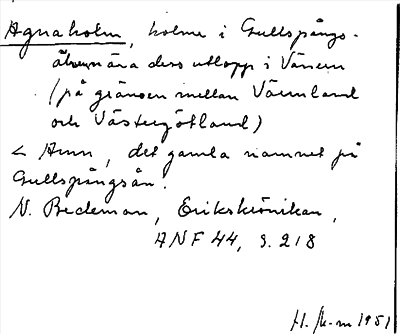 Agnaholm, holme i Gullspångs-
älven nära dess utlopp i Vänern
(på gränsen mellan Värmland
och Västergötland)
< Amn, det gamla namnet på
Gullspångsån.
N. Beckman, Erikskrönikan,
ANF 44, s. 218
H. 1951